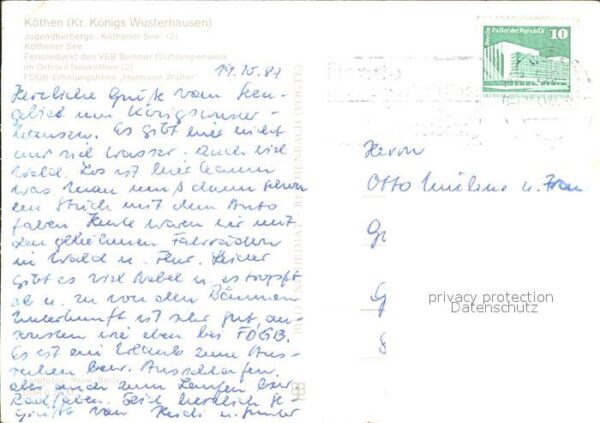 Köthen (Kr. Königs Wusterhausen)
Jugendherberge „Köthener See“ (2)
Köthener See
Ferienobjekt des VEB Berliner Glühlampenwerk
im Ortsteil Neuköthen (2)
FDGB Erholungsheim „Hermann Walter“
19.10.87
Herzliche Grüße vom Seen-
gebiet um Königswuster-
hausen. Es gibt hier nicht
nur viel Wasser. Auch viel
Wald. Los ist hier kaum
was man muß dann schon
ein Stück mit dem Auto
fahren. Heute waren wir mit
den geliehenen Fahrrädern
in Wald u. Flur. Leider
gibt es viel Nebel u. es tropft
ab u. zu von den Bäumen
Unterkunft ist sehr gut, an-
sonsten wie eben bei FDGB.
Es ist ein Urlaub zum Aus-
ruhen bzw. Ausschlafen,
aber auch zum Laufen bzw
Radfahren. Seid herzlich ge-
grüßt von Heidi u. Günter
BILD UND HEIMAT REICHENBACH (VOGTL)
Palast der Republik
10
Herrn
Otto u. Frau
G
G
8
privacy protection
Datenschutz